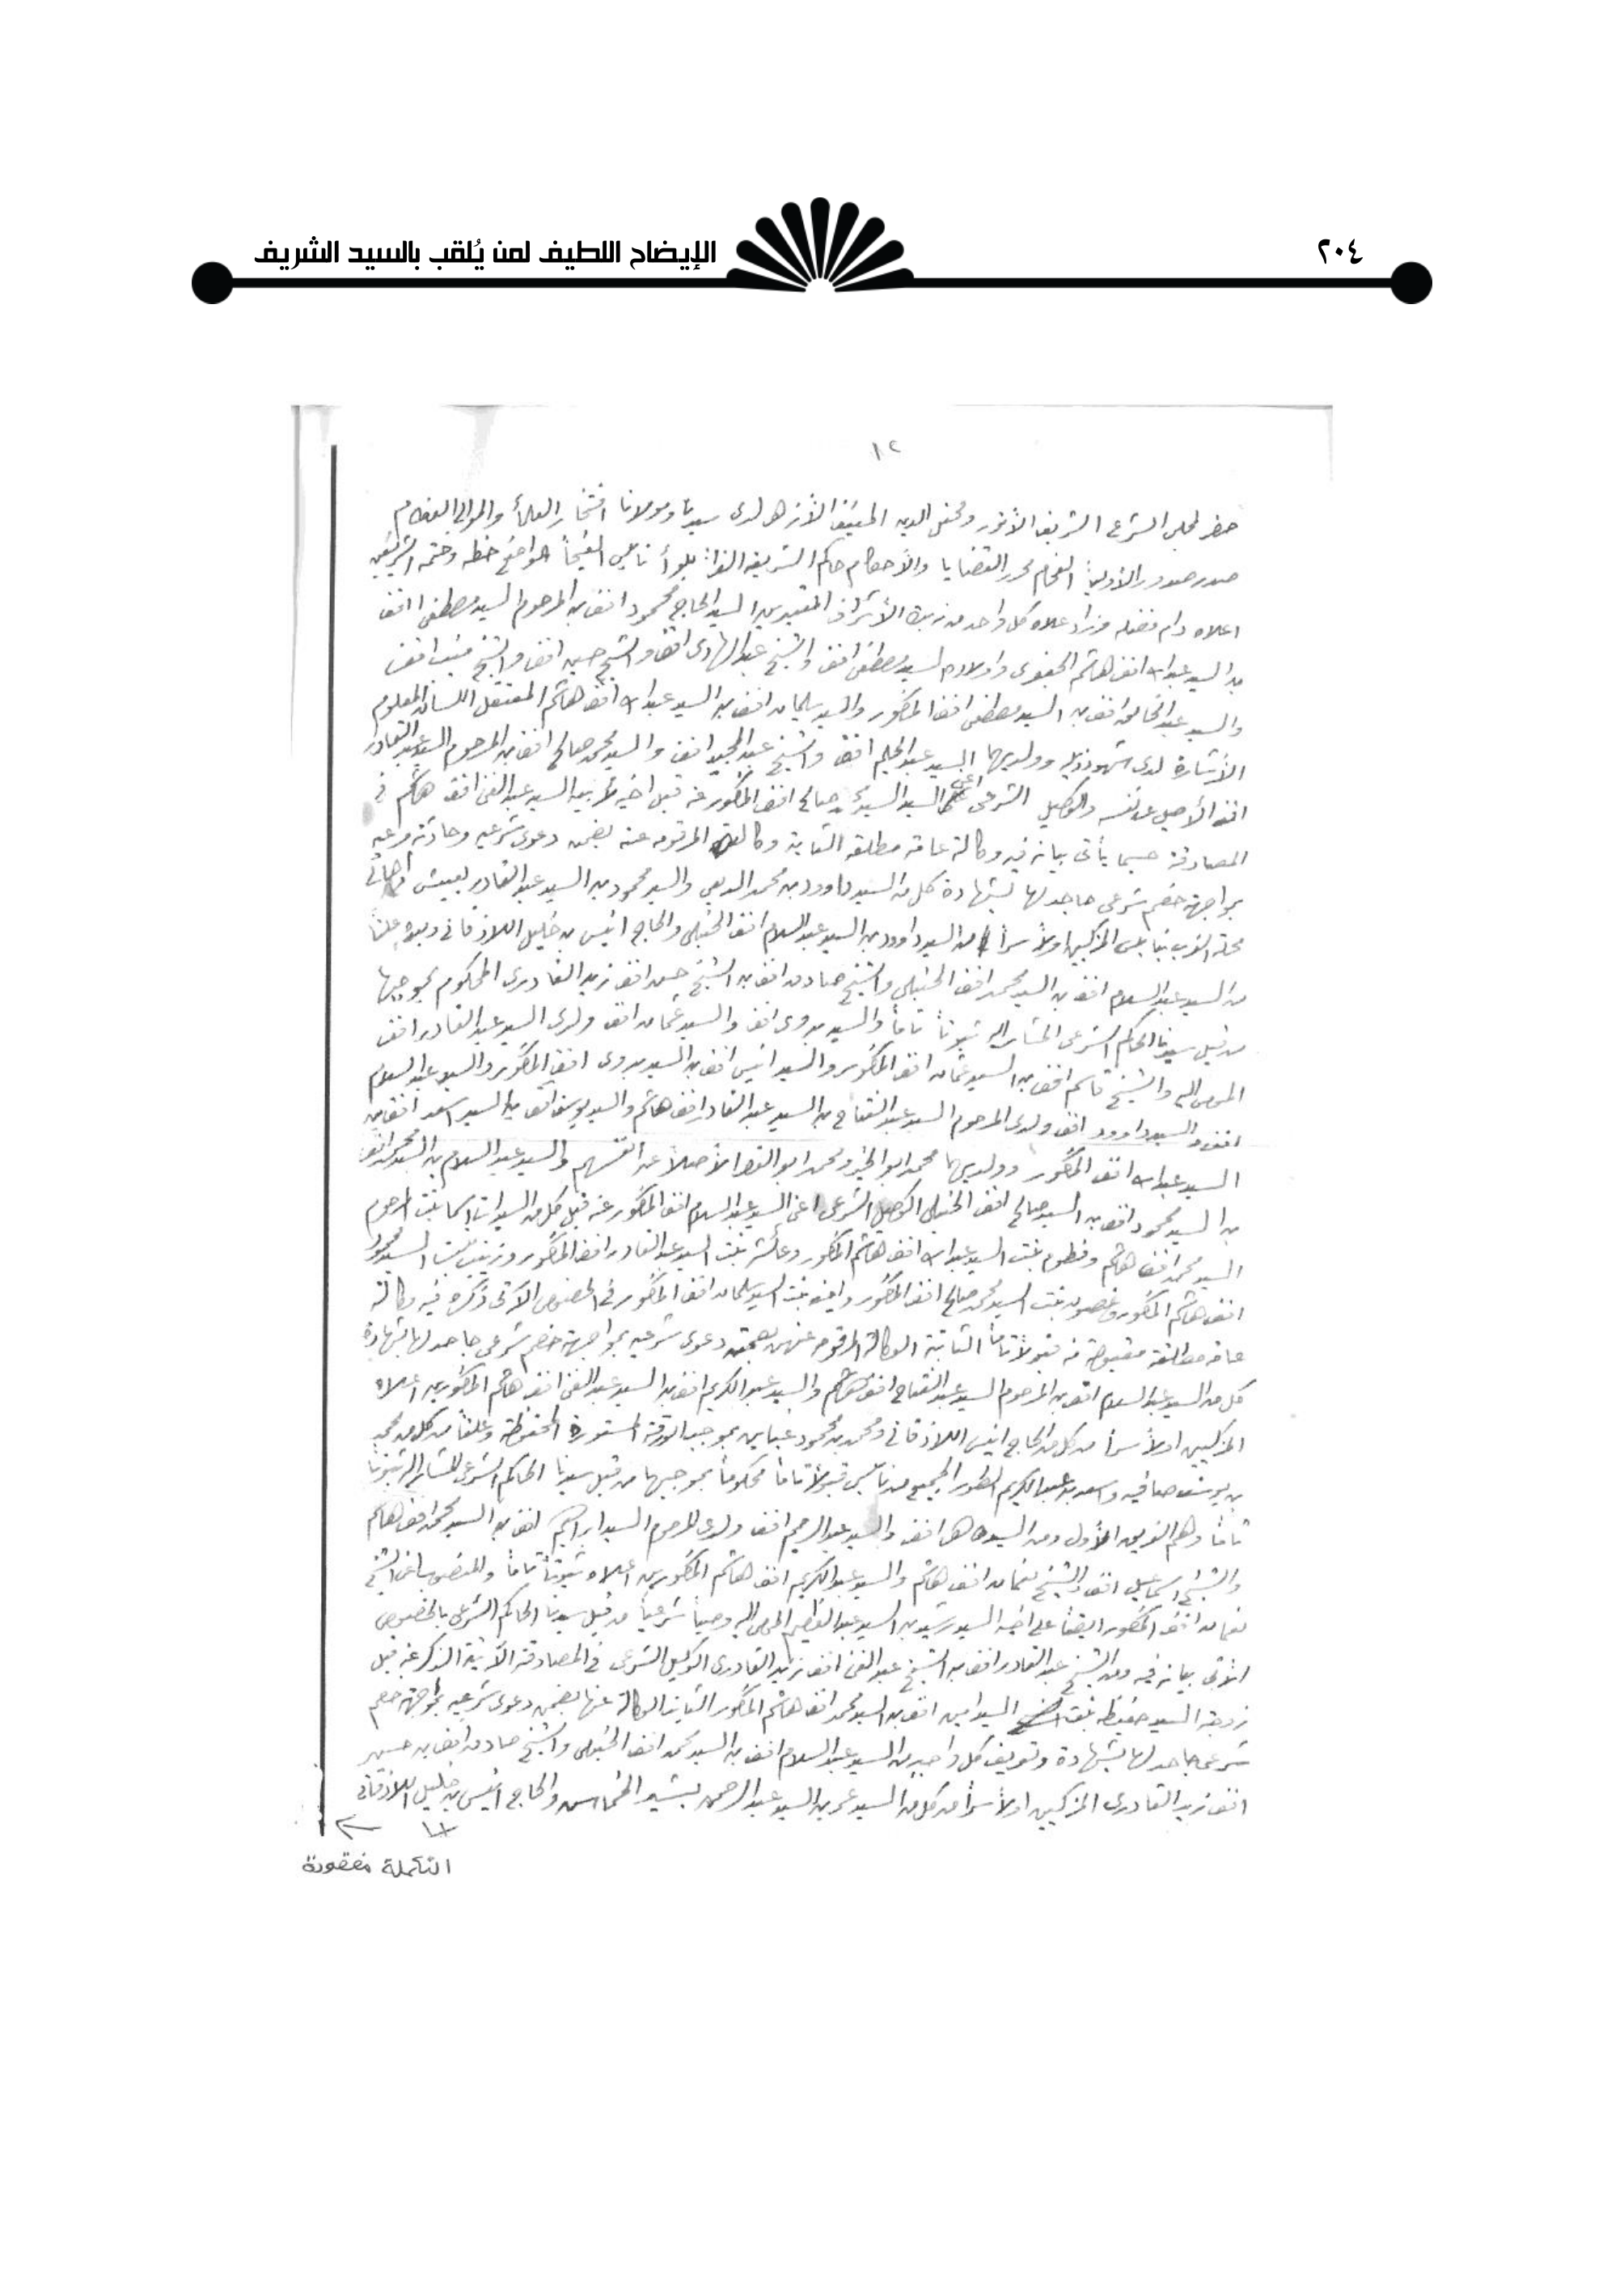 الإيضاح اللطيف لمن يُلقب بالسيد الشريف
٢٠٤
١٢
حضر لمجلس الشرع الشريف الأنور ومحفل الدين المنيف الأزهر لدى سيدنا ومولانا افتخار العلماء والموالي العظام
صدر صدور الأوليا الفخام محرر القضايا والأحكام حاكم الشريعة الغراء بلواء نابلس الفيحاء الواضع خطه وختمه الشريفين
اعلاه دام فضله وزاد علاه كل واحد من زبدة الأشراف المعتبرين السيد الحاج محمود افندي بن المرحوم السيد مصطفى افندي
بن السيد عبدالله افندي هاشم الجعفري واولاده السيد مصطفى افندي والشيخ عبدالهادي افندي والشيخ حسين افندي والشيخ منيب افندي
والسيد عبدالخالق افندي بن السيد مصطفى افندي المذكور والسيد سليمان افندي بن السيد عبدالله افندي هاشم المعتقل اللسان المعلوم
الأشارة لدى شهود ذيله وولديهما السيد عبدالحليم افندي والشيخ عبدالمجيد افندي والسيد محمد صالح افندي بن المرحوم السيد عبدالقادر
افندي الأصيل عن نفسه والوكيل الشرعي اعني السيد محمد صالح افندي المذكور عن قبل اخيه لأبيه السيد عبدالغني افندي هاشم في
المصادقة حسبما يأتي بيانه فيه وكالة عامة مطلقة الثابتة وكالته المرقومة عنه بضمن دعوى شرعيه وحادثة مرعيه
بمواجهة خصم شرعي جاحد لها بشهادة كل من السيد داوود بن محمد والسيد محمود بن السيد عبدالقادر يعيش من اهالي
محلة الغرب بنابلس المزكيين اولاً سراً من السيد داوود بن السيد عبدالسلام افندي الحنبلي والحاج انيس بن خليل اللاذقاني وبعده علناً
من السيد عبدالسلام افندي بن السيد محمد افندي الحنبلي والشيخ صادق افندي بن الشيخ حسن افندي زيد القادري المحكوم بموجبها
من قبل سيدنا الحاكم الشرعي المشار اليه ثبوتاً تاماً والسيد بدوي افندي والسيد عثمان افندي ولدي السيد عبدالقادر افندي
المومى اليه والشيخ قاسم افندي بن السيد عثمان افندي المذكور والسيد انيس افندي بن السيد بدوي افندي المذكور والسيد عبدالسلام
افندي والسيد داوود افندي ولدي المرحوم السيد عبدالفتاح بن السيد عبدالقادر افندي هاشم والسيد يوسف افندي بن السيد اسعد افندي بن
السيد عبدالله افندي المذكور وولديهما محمد ابو الخير ومحمد ابو الفضل الأصلاً عن انفسهم والسيد عبدالسلام بن السيد محمد افندي
بن السيد محمود افندي بن السيد صالح افندي الحنبلي الوكيل الشرعي اعني السيد عبدالسلام افندي المذكور عن قبل كل من السيدات اسما بنت المرحوم
السيد محمد افندي هاشم وفطوم بنت السيد عبدالله افندي هاشم المذكور وعائشة بنت السيد عبدالقادر افندي المذكور وزينب بنت السيد محمود
افندي هاشم المذكور وغصون بنت السيد محمد صالح افندي المذكور وامينه بنت السيد سليمان افندي المذكور في الخصوص الآتي ذكره فيه وكالة
عامة مطلقة مقبوله منه قبولاً تاماً الثابتة الوكالة المرقومه عنهن بضمن دعوى شرعيه بمواجهة خصم شرعي جاحد لها بشهادة
كل من السيد عبدالسلام افندي بن المرحوم السيد عبدالفتاح افندي هاشم والسيد عبدالكريم افندي بن السيد عبدالغني افندي هاشم المذكورين اعلاه
المزكيين اولاً سراً من كل من الحاج انيس اللاذقاني ومحمد بن محمود عباس بموجب الورقة المستورة المحفوظة وعلناً من كل من محمد
بن يوسف صافيه واسعد بن عبدالكريم الجميع من نابلس قبولاً تاماً محكوماً بموجبها من قبل سيدنا الحاكم الشرعي المشار اليه ثبوتاً
تاماً وهم الفريق الأول ومن السيد افندي والسيد عبدالرحيم افندي ولدي المرحوم السيد ابراهيم افندي بن السيد محمد افندي هاشم
والشيخ اسماعيل افندي والشيخ نعمان افندي هاشم والسيد عبدالكريم افندي هاشم المذكورين اعلاه ثبوتاً تاماً والمنصوب اعني الشيخ
نعمان افندي المذكور ايضاً على اخيه السيد رشيد بن السيد عبدالعظيم المومى اليه وصياً شرعياً من قبل سيدنا الحاكم الشرعي بالخصوص
الآتي بيانه فيه ومن الشيخ عبدالقادر افندي بن الشيخ عبدالغني افندي زيد القادري الوكيل الشرعي في المصادقة الآتية الذكر عن قبل
زوجته السيد حفيظة بنت السيد امين افندي بن السيد محمد افندي هاشم المذكور الثابت الوكالة عنها بضمن دعوى شرعيه بمواجهة خصم
شرعي جاحد لها بشهادة وتعريف كل واحد من السيد عبدالسلام افندي بن السيد محمد افندي الحنبلي والشيخ صادق افندي بن حسين
افندي زيد القادري المزكيين اولاً سراً من كل من السيد عمر بن السيد عبدالرحمن بشير الخماس والحاج انيس بن خليل اللاذقاني
التكملة مفقودة